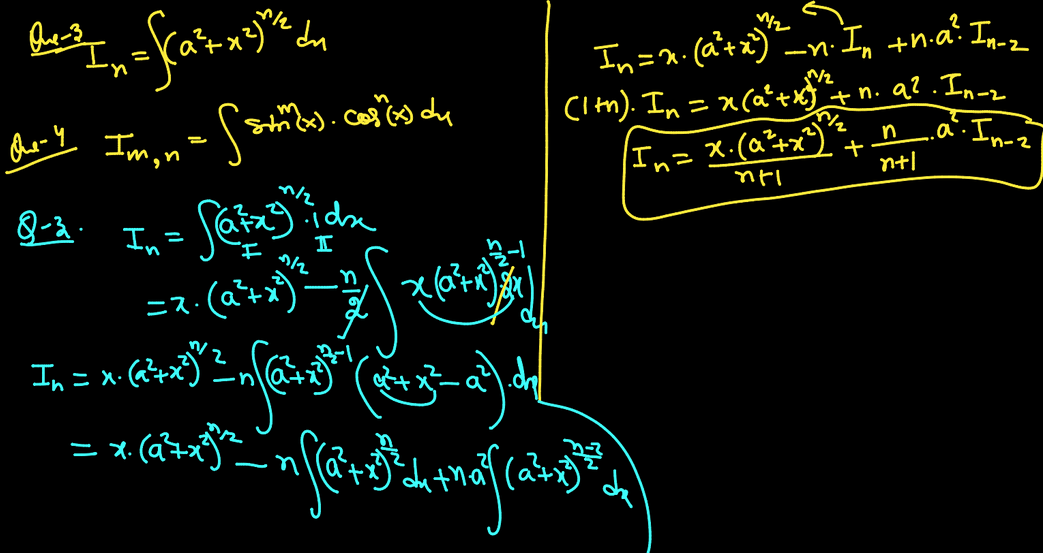 Que-3 I_n = ∫(a²+x²)^{n/2} dx
Que-4 I_{m,n} = ∫ sin^m(x) · cos^n(x) dx
Q-3. I_n = ∫(a²+x²)^{n/2} · 1 dx
I II
= x · (a²+x²)^{n/2} - n/2 ∫ x(a²+x²)^{n/2-1} 2x dx
I_n = x·(a²+x²)^{n/2} - n∫(a²+x²)^{n/2-1} (a²+x²-a²)·dx
= x·(a²+x²)^{n/2} - n∫(a²+x²)^{n/2} dx + n·a²∫(a²+x²)^{(n-2)/2} dx
I_n = x·(a²+x²)^{n/2} - n·I_n + n·a²·I_{n-2}
(1+n)·I_n = x(a²+x²)^{n/2} + n·a²·I_{n-2}
I_n = x·(a²+x²)^{n/2}/(n+1) + n/(n+1)·a²·I_{n-2}